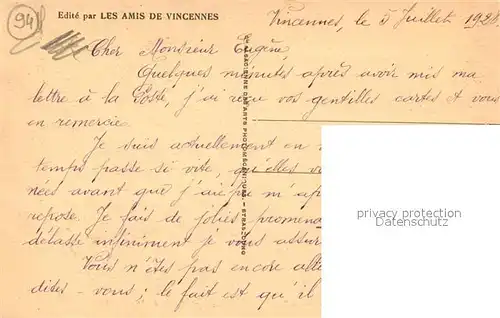 94
Edité par LES AMIS DE VINCENNES
Vincennes, le 5 Juillet 192
Cher Monsieur Eugène,
Quelques minutes après avoir mis ma
lettre à la Poste, j'ai reçu vos gentilles cartes et vous
en remercie.
Je suis actuellement en
temps passe si vite, qu'elles
nées avant que j'ai pu m'ap
repose. Je fais de jolies promena
délasse infiniment je vous assur
Vous n'êtes pas encore allé
dites-vous; le fait est qu'il
ALSACIENNE DES ARTS PHOTOMÉCANIQUES - STRASBOURG
privacy protection
Datenschutz